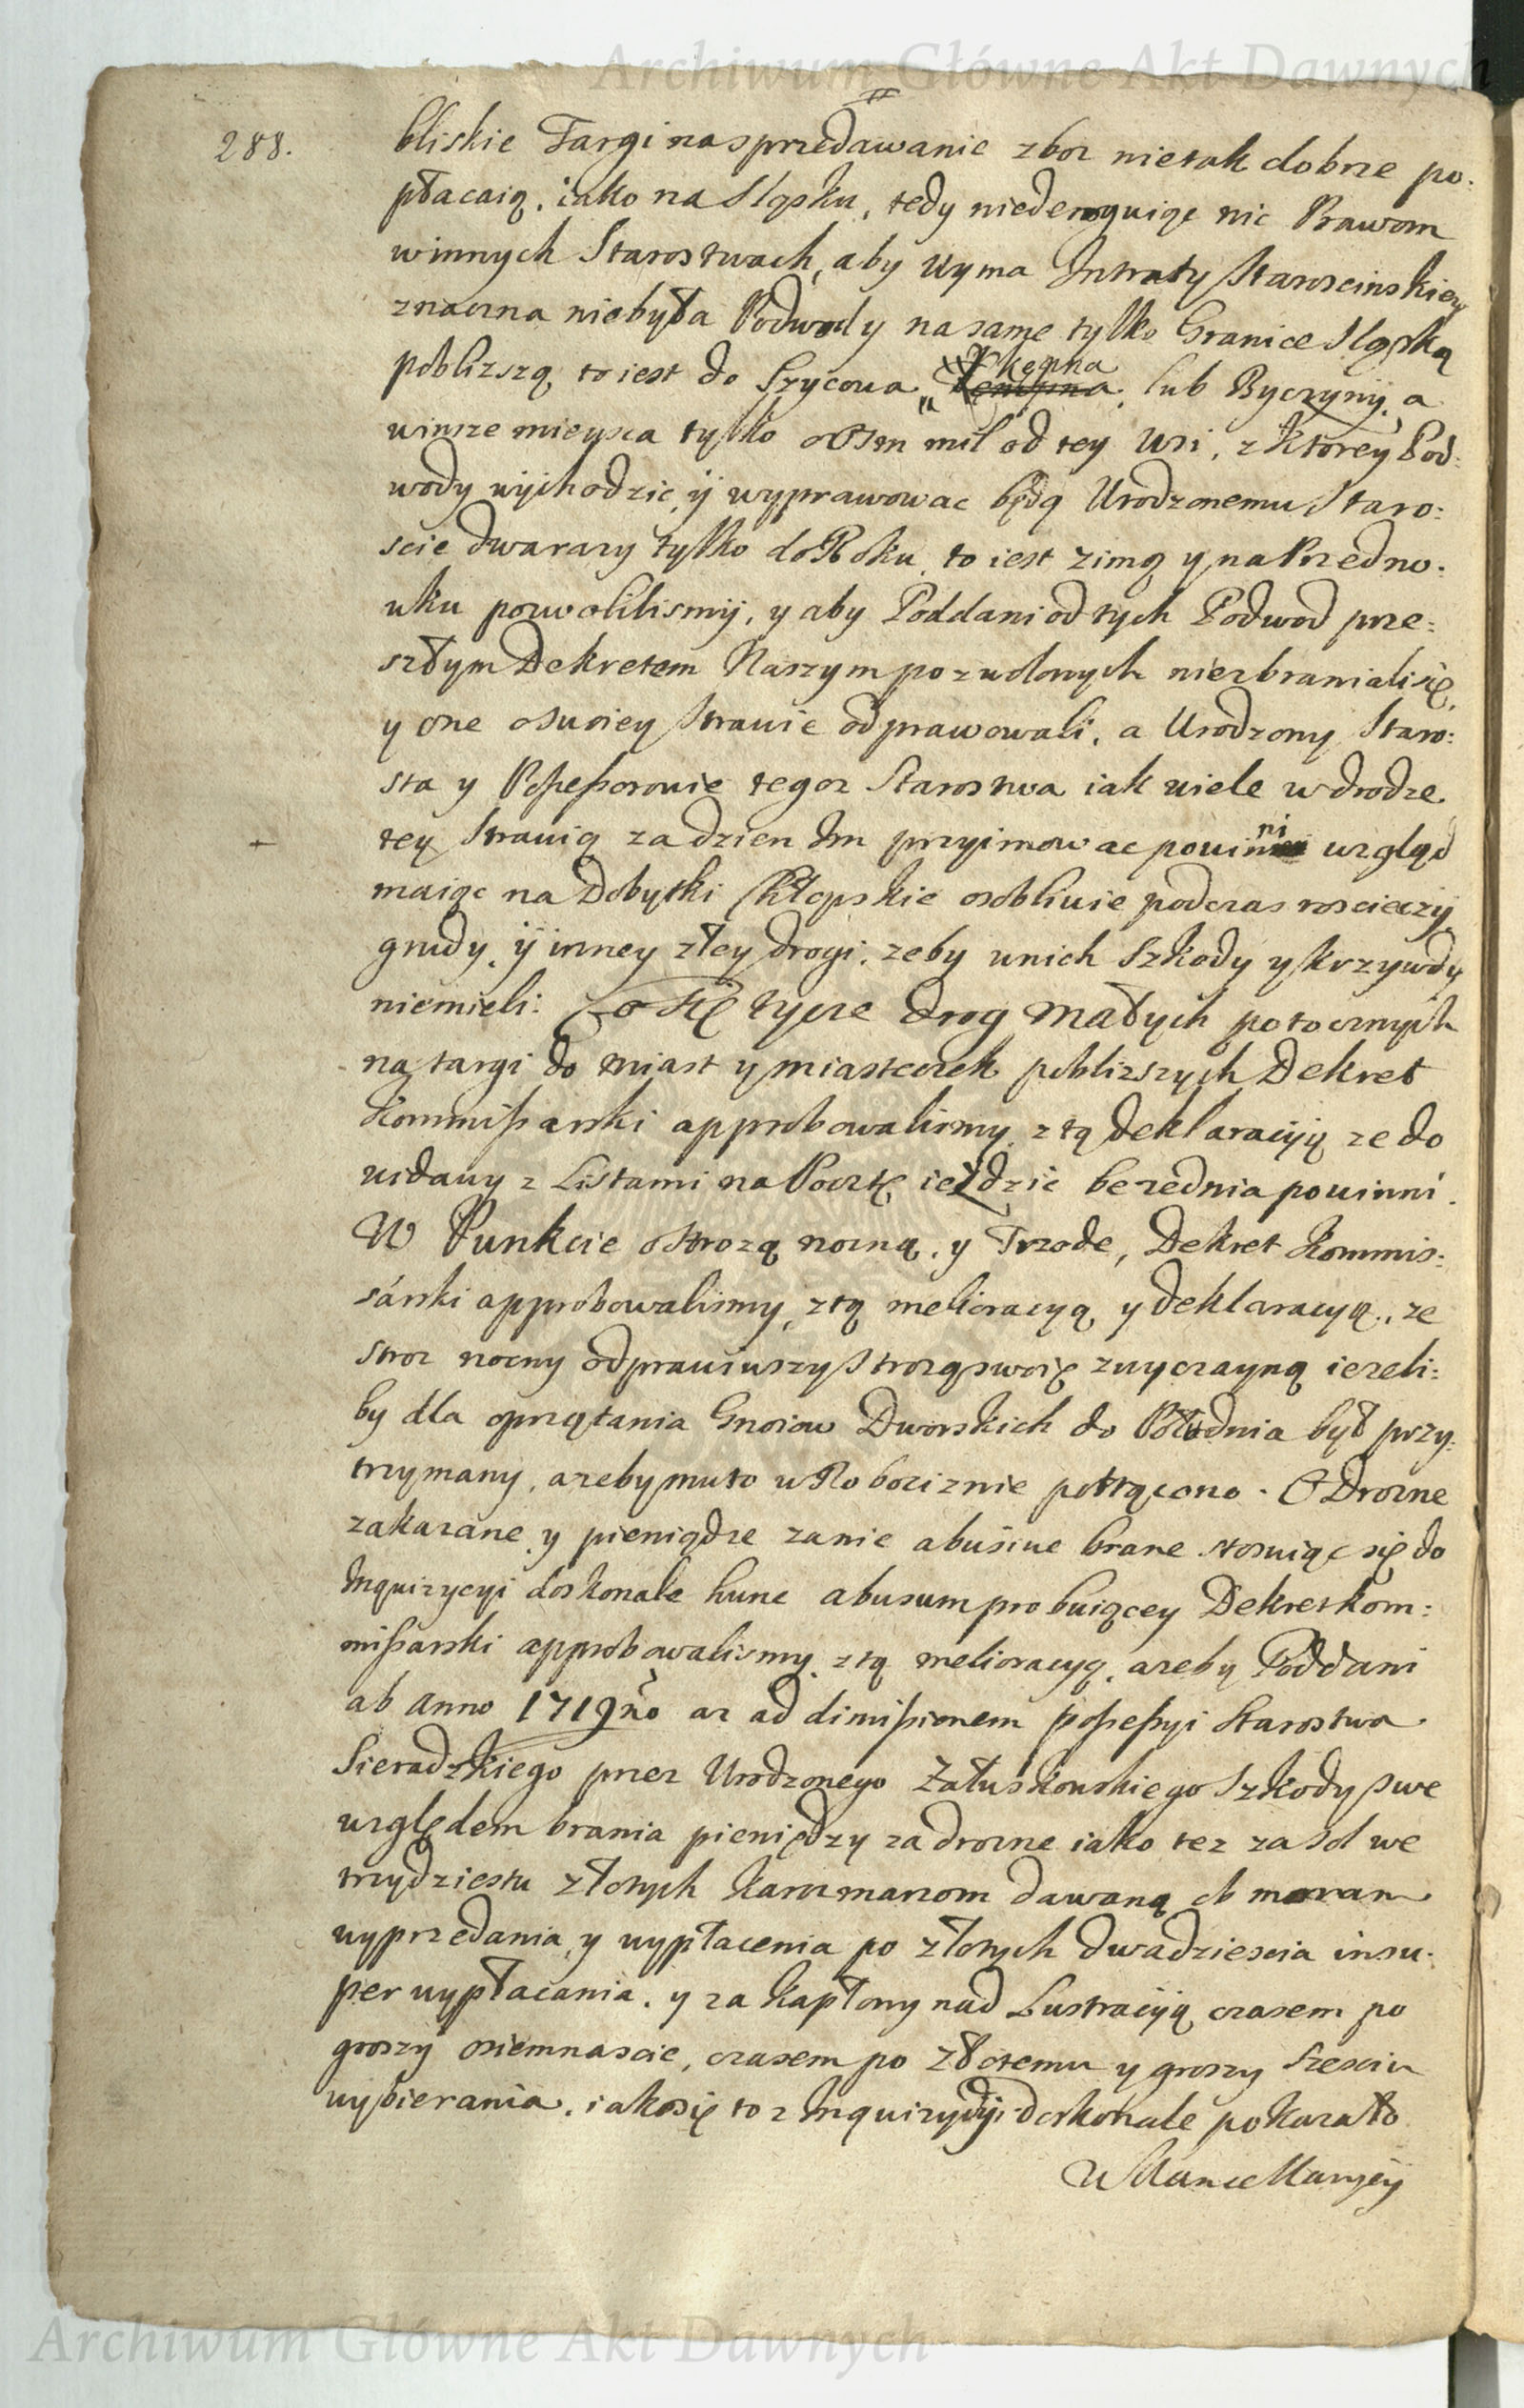 Archiwum Główne Akt Dawnych
288.
bliskie Targi na sprzedawanie zboz nietak dobrze po:
płacaią, iako na Sląsku, tedy niederoguiąc nic Prawom
winnych Starostwach, aby Uyma Intraty Staroscinskiey
znaczna niebyła Podwody na same tylko Granice Sląską
poblizszą, to iest do Sycowa, Kępna, lub Byczyny, a
winsze mieysca tylko osm mil od tey Wsi, z ktorey Pod:
wody wychodzic, ÿ wyprawowac będą Urodzonemu Staro:
scie dwarazy tylko do Roku, to iest zimą y na Przedno:
wku pozwolilismÿ, y aby Poddani od tych Podwod prze:
szłym Dekretem Naszym pozwolonych niezbraniali się,
y one o swoiey strawie odprawowali, a Urodzony Staro:
sta y Possessorowie tegoz Starostwa iak wiele w drodze
tey strawią za dzien Im przyimowac powinni wzgląd
maiąc na Dobytki Chłopskie osobliwie podczas roscieczÿ
grudy, ÿ inney złey drogi, zeby unich Szkody y krzywdy
niemieli: Co się tycze drog małych potocznych
na targi do miast y miasteczek poblizszych Dekret
Kommissarski approbowalismy, z tą deklaracyią ze do
widawy z Listami na Pocztę iezdzic bezednia powinni.
W Punkcie o strozą nocną, y Trzode, Dekret Kommis:
sárski approbowalismy, ztą melioracyą y deklaracyą, ze
stroz nocny odprawiwszy strozą swoię zwyczayną iezeli:
by dla oprzątania Gnoiow Dworskich do Południa był przy:
trzymany, azeby muto w Robociznie potrącono. O Drozne
zakazane y pieniądze zanie abusive brane stosuiąc się do
Inquizycyi doskonale hunc abusum probuiącey Dekret kom:
missarski approbowalismy ztą melioracyą, azeby Poddani
ab Anno 1719no az ad dimissionem possessyi Starostwa
Sieradzkiego przez Urodzonego Załuskowskiego Szkody swe
względem brania pieniędzy za drozne iako tez za sol we
trzydziestu złotych karczmarzom dawaną ob moram
wyprzedania, y wypłacenia po złotych dwadziescia insu:
per wypłacania, y za kapłony nad Lustracyią czasem po
groszy osiemnascie, czasem po złotemu y groszy szesciu
wybierania, iako się to z Inquizycyi doskonale pokazało
W Kancellaryey
Archiwum Główne Akt Dawnych